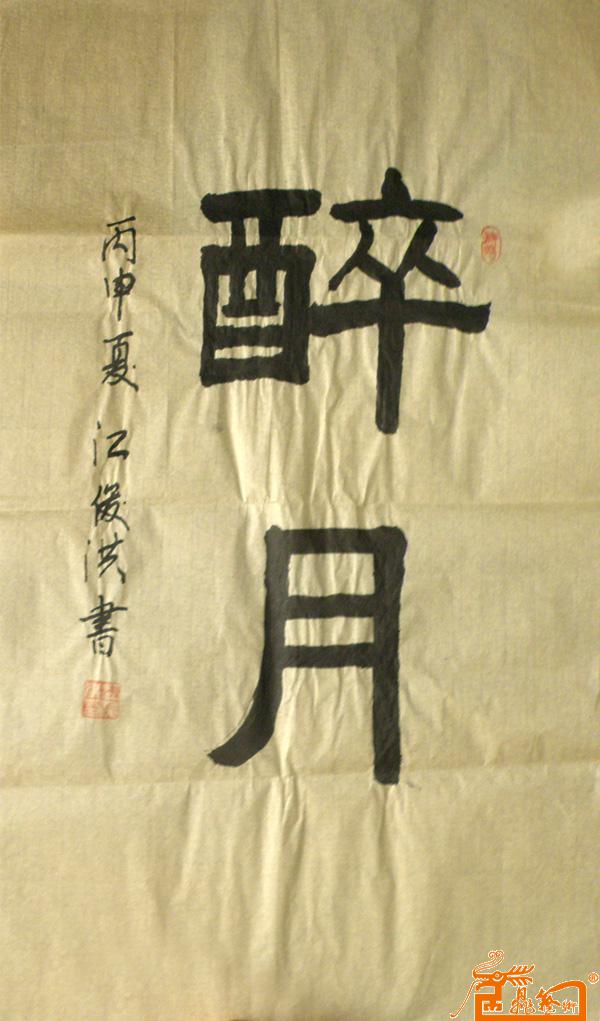 醉月
丙申夏 江俊洪書